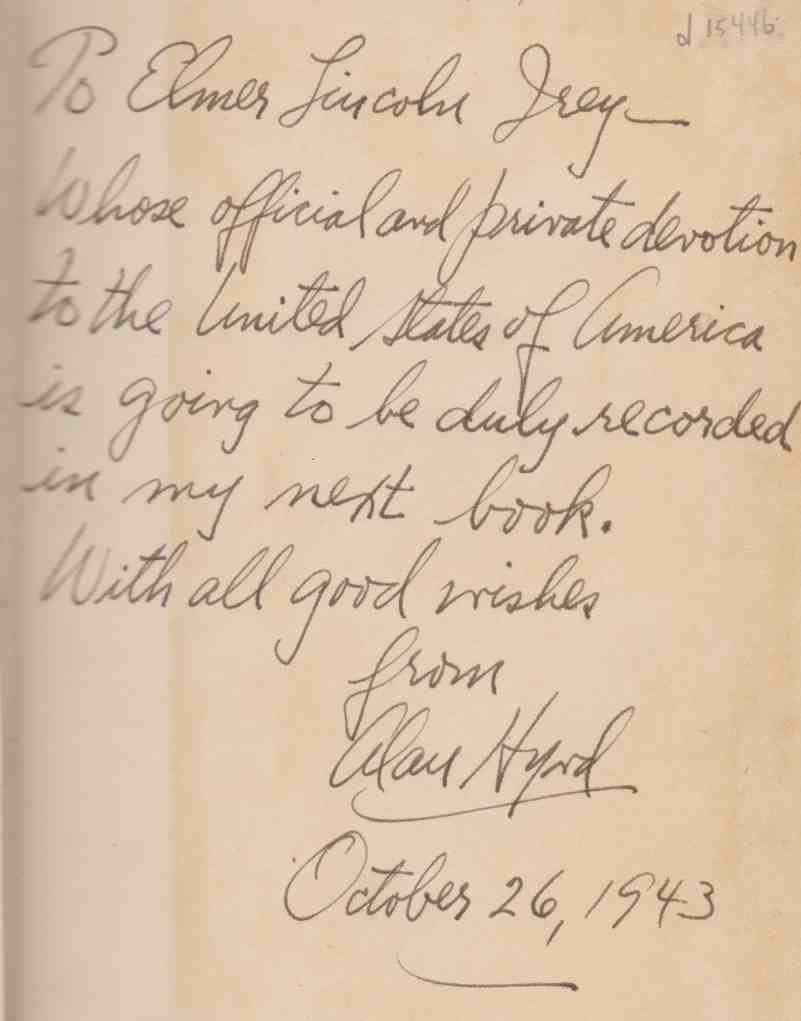 d 15446
To Elmer Lincoln Irey—
Whose official and private devotion
to the United States of America
is going to be duly recorded
in my next book.
With all good wishes
from
Alan Hynd
October 26, 1943